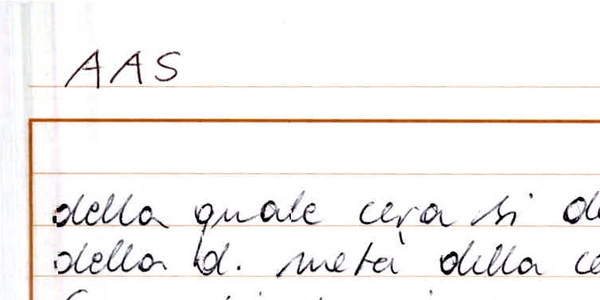 AAS
della quale cera si de
della d. metà della ce